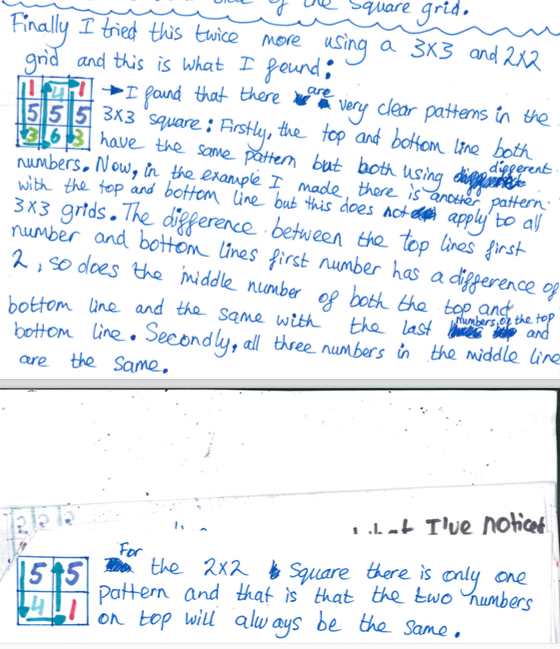 the Square grid.
Finally I tried this twice more using a 3X3 and 2X2
grid and this is what I found:
1 4 1
5 5 5
3 6 3
→ I found that there are very clear patterns in the
3X3 square: Firstly, the top and bottom line both
have the same pattern but both using different
numbers. Now, in the example I made there is another pattern
with the top and bottom line but this does not apply to all
3X3 grids. The difference between the top lines first
number and bottom lines first number has a difference of
2, so does the middle number of both the top and
bottom line and the same with the last numbers of the top and
bottom line. Secondly, all three numbers in the middle line
are the same.
I've noticed
5 5
4 1
For the 2X2 Square there is only one
pattern and that is that the two numbers
on top will always be the same.